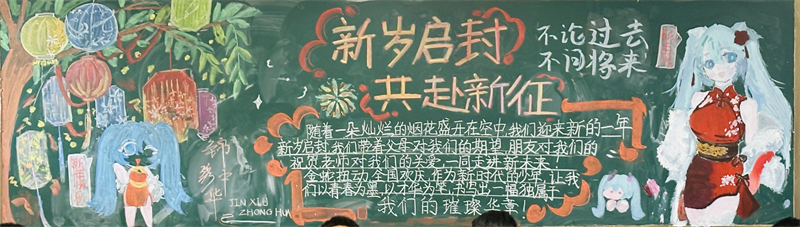 新岁启封
共赴新征
不论过去
不问将来
随着一朵灿烂的烟花盛开在空中,我们迎来新的一年
新岁启封,我们带着父母对我们的期望,朋友对我们的
祝贺,老师对我们的关爱,一同走进新未来!
金蛇扭动,全国欢庆,作为新时代的少年,让我
们以青春为墨,以才华为笔,书写出一幅独属于
我们的璀璨华章!
JIN XIU
ZHONG HUA